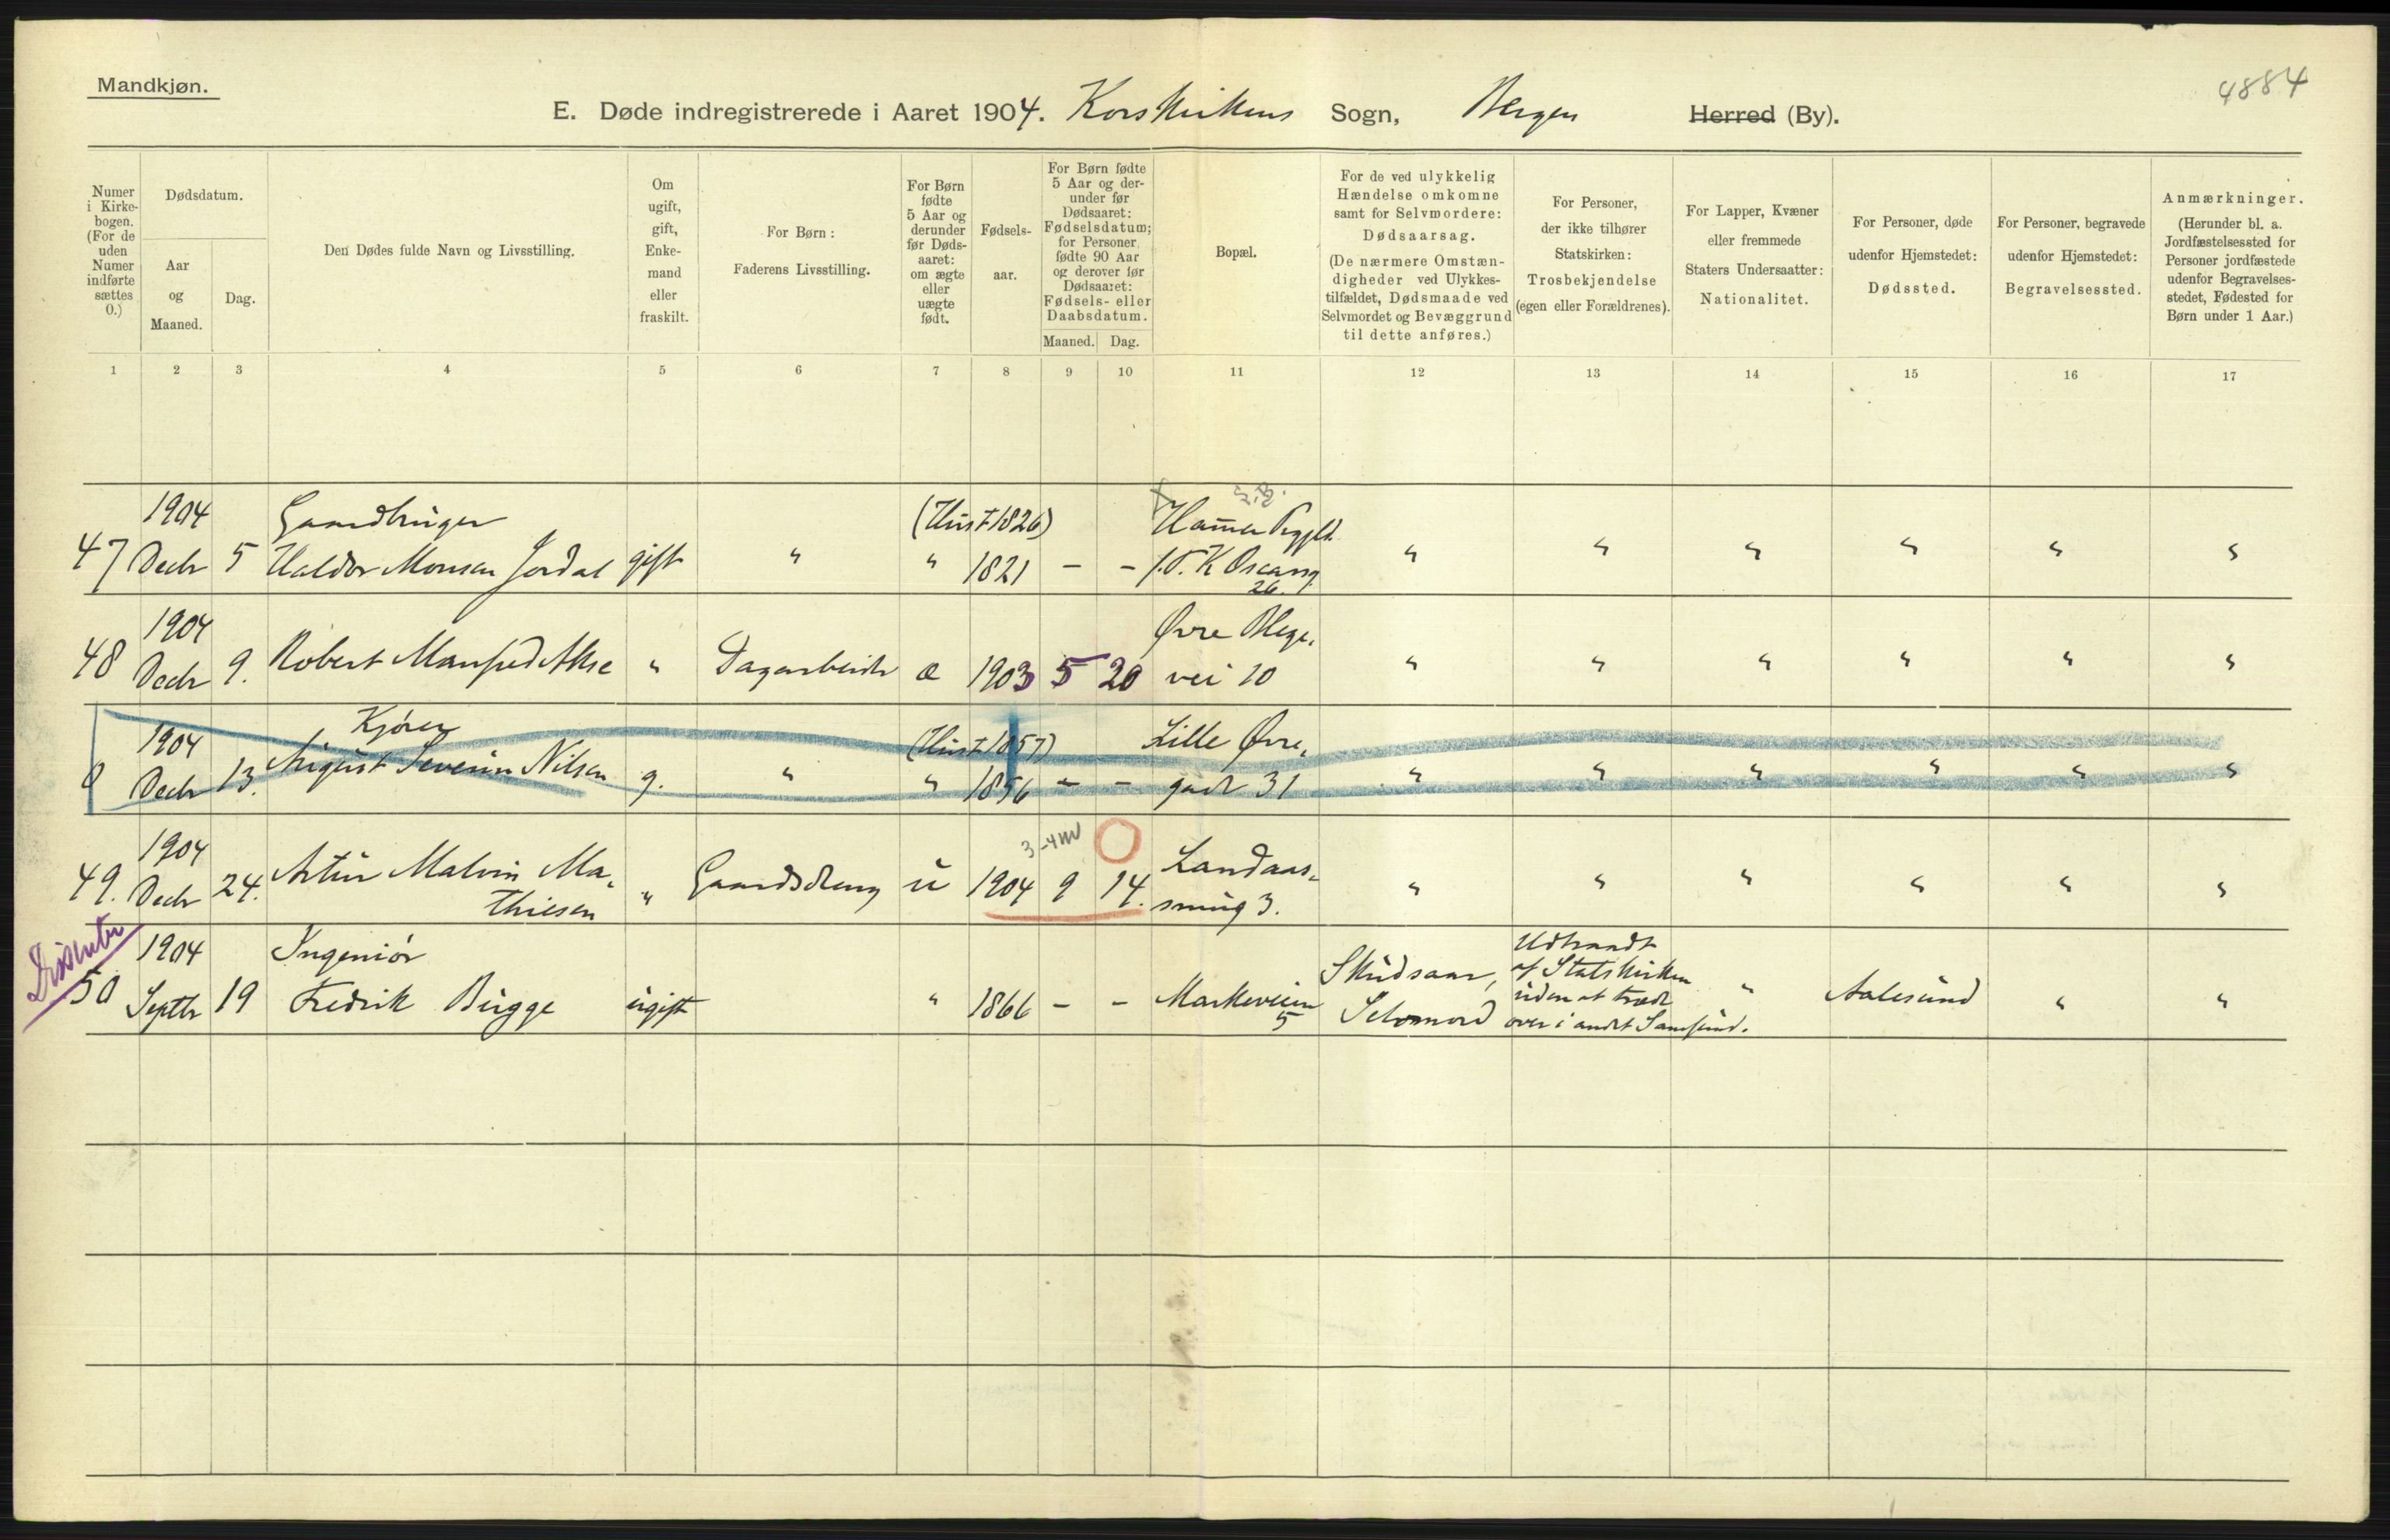 Mandkjøn.
4884
E. Døde indregistrerede i Aaret 1904. Korskirkens Sogn, Bergen Herred (By).
Numer i Kirkebogen. (For de uden Numer indførte sættes 0.)
Dødsdatum.
Aar og Maaned.
Dag.
Den Dødes fulde Navn og Livsstilling.
Om ugift, gift, Enkemand eller fraskilt.
For Børn: Faderens Livsstilling.
For Børn fødte 5 Aar og derunder før Dødsaaret: om ægte eller uægte født.
Fødselsaar.
For Børn fødte 5 Aar og derunder før Dødsaaret: Fødselsdatum; for Personer fødte 90 Aar og derover før Dødsaaret: Fødsels- eller Daabsdatum.
Maaned. Dag.
Bopæl.
For de ved ulykkelig Hændelse omkomne samt for Selvmordere: Dødsaarsag. (De nærmere Omstændigheder ved Ulykkestilfældet, Dødsmaade ved Selvmordet og Bevæggrund til dette anføres.)
For Personer, der ikke tilhører Statskirken: Trosbekjendelse (egen eller Forældrenes).
For Lapper, Kvæner eller fremmede Staters Undersaatter: Nationalitet.
For Personer, døde udenfor Hjemstedet: Dødssted.
For Personer, begravede udenfor Hjemstedet: Begravelsessted.
Anmærkninger. (Herunder bl. a. Jordfæstelsessted for Personer jordfæstede udenfor Begravelsesstedet, Fødested for Børn under 1 Aar.)
1 2 3 4 5 6 7 8 9 10 11 12 13 14 15 16 17
1904 Gaardbruger (Hust. 1826) Hamer Prgjld.
47 Decbr 5 Haldor Monsen Jordal gift " " 1821 - - " " " " " "
26.
1904 Øvre Blege-
48 Decbr 9. Robert Manfred " Dagarbeider æ 1903 5 20 vei 10 " " " " " "
1904 Kjører (Hust. 1857) Lille Øvre-
0 Decbr 13. August Severin Nilsen g. " " 1856 - - gade 31 " " " " " "
1904 3-4 m Landaas-
49. Decbr 24. Artur Malvin Ma-
thiesen " Gaardsdreng u 1904 9 14. smug 3. " " " " " "
Dissenter
1904 Ingeniør Skudsaar, Udtraadt af Statskirken
50 Septbr 19 Fredrik Bugge ugift " 1866 - - Markeveien 5 Selvmord uden at træde over i andet Samfund. " Aalesund " "